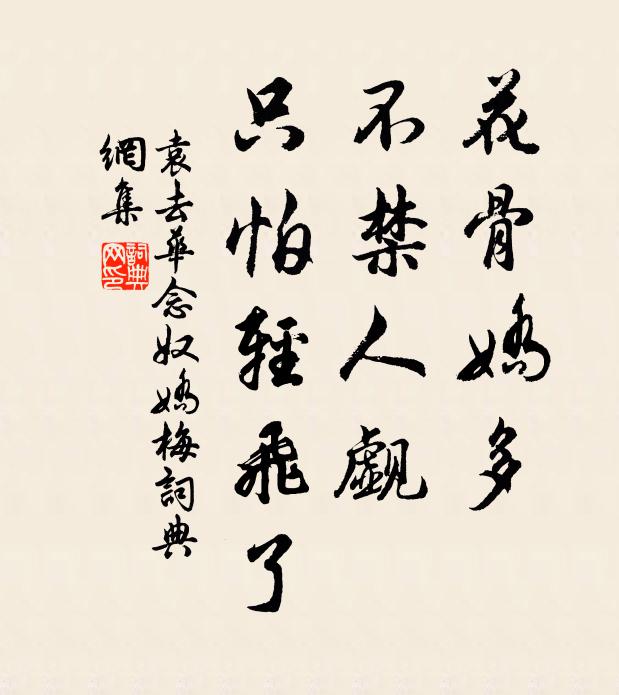 花骨嬌多
不禁人覷
只怕輕飛了
袁去華念奴嬌梅詞典
網集
詞典
网印